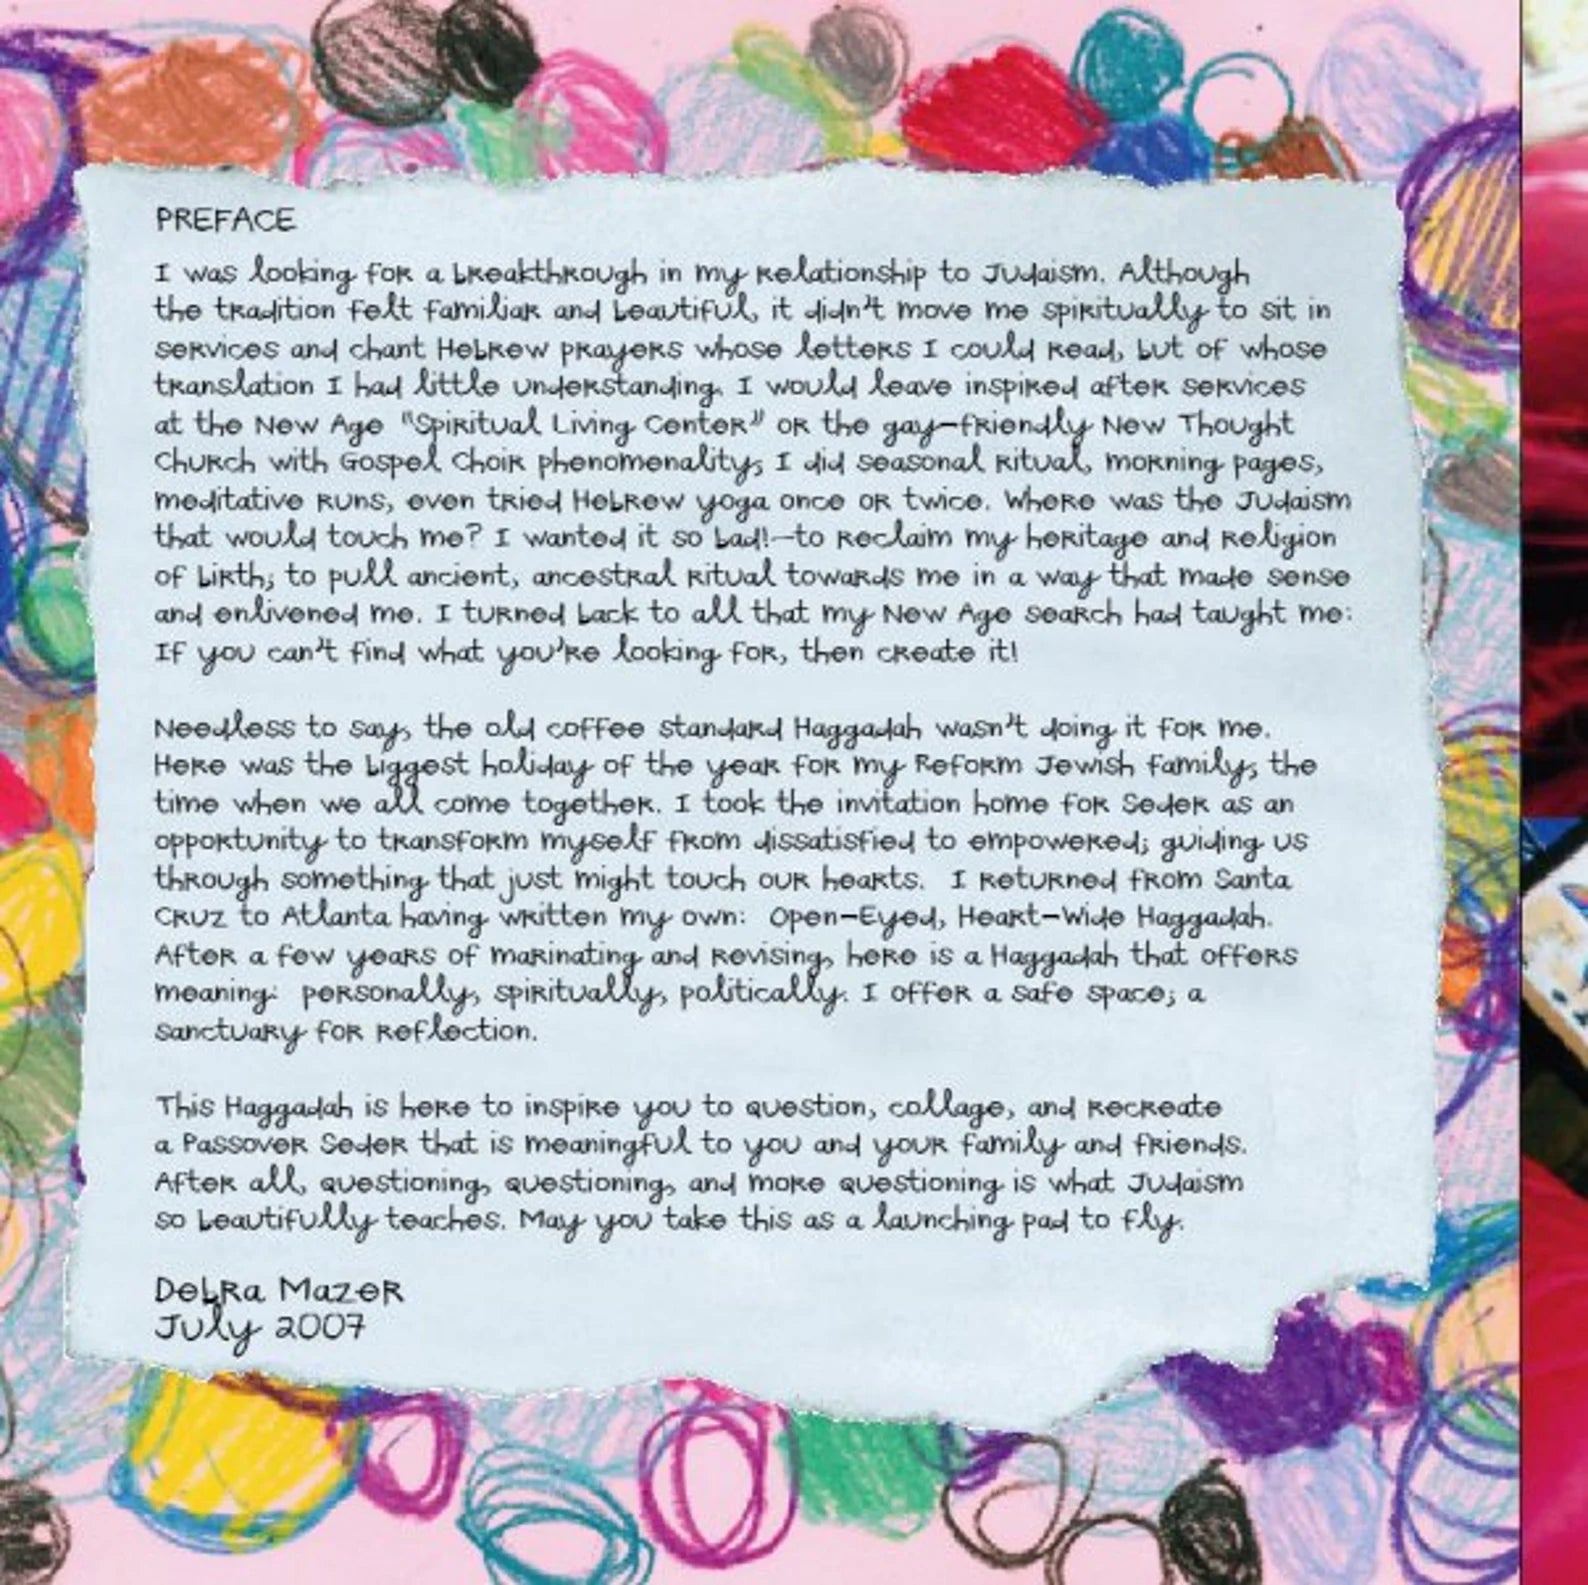 PREFACE
I was looking for a breakthrough in my relationship to Judaism. Although
the tradition felt familiar and beautiful, it didn't move me spiritually to sit in
services and chant Hebrew prayers whose letters I could read, but of whose
translation I had little understanding. I would leave inspired after services
at the New Age "Spiritual Living Center" or the gay-friendly New Thought
Church with Gospel Choir phenomenality; I did seasonal ritual, morning pages,
meditative runs, even tried Hebrew yoga once or twice. Where was the Judaism
that would touch me? I wanted it so bad!—to reclaim my heritage and religion
of birth; to pull ancient, ancestral ritual towards me in a way that made sense
and enlivened me. I turned back to all that my New Age search had taught me:
If you can't find what you're looking for, then create it!
Needless to say, the old coffee standard Haggadah wasn't doing it for me.
Here was the biggest holiday of the year for my Reform Jewish family, the
time when we all come together. I took the invitation home for Seder as an
opportunity to transform myself from dissatisfied to empowered; guiding us
through something that just might touch our hearts. I returned from Santa
Cruz to Atlanta having written my own: Open-Eyed, Heart-Wide Haggadah.
After a few years of marinating and revising, here is a Haggadah that offers
meaning: personally, spiritually, politically. I offer a safe space; a
sanctuary for reflection.
This Haggadah is here to inspire you to question, collage, and recreate
a Passover Seder that is meaningful to you and your family and friends.
After all, questioning, questioning, and more questioning is what Judaism
so beautifully teaches. May you take this as a launching pad to fly.
Debra Mazer
July 2007